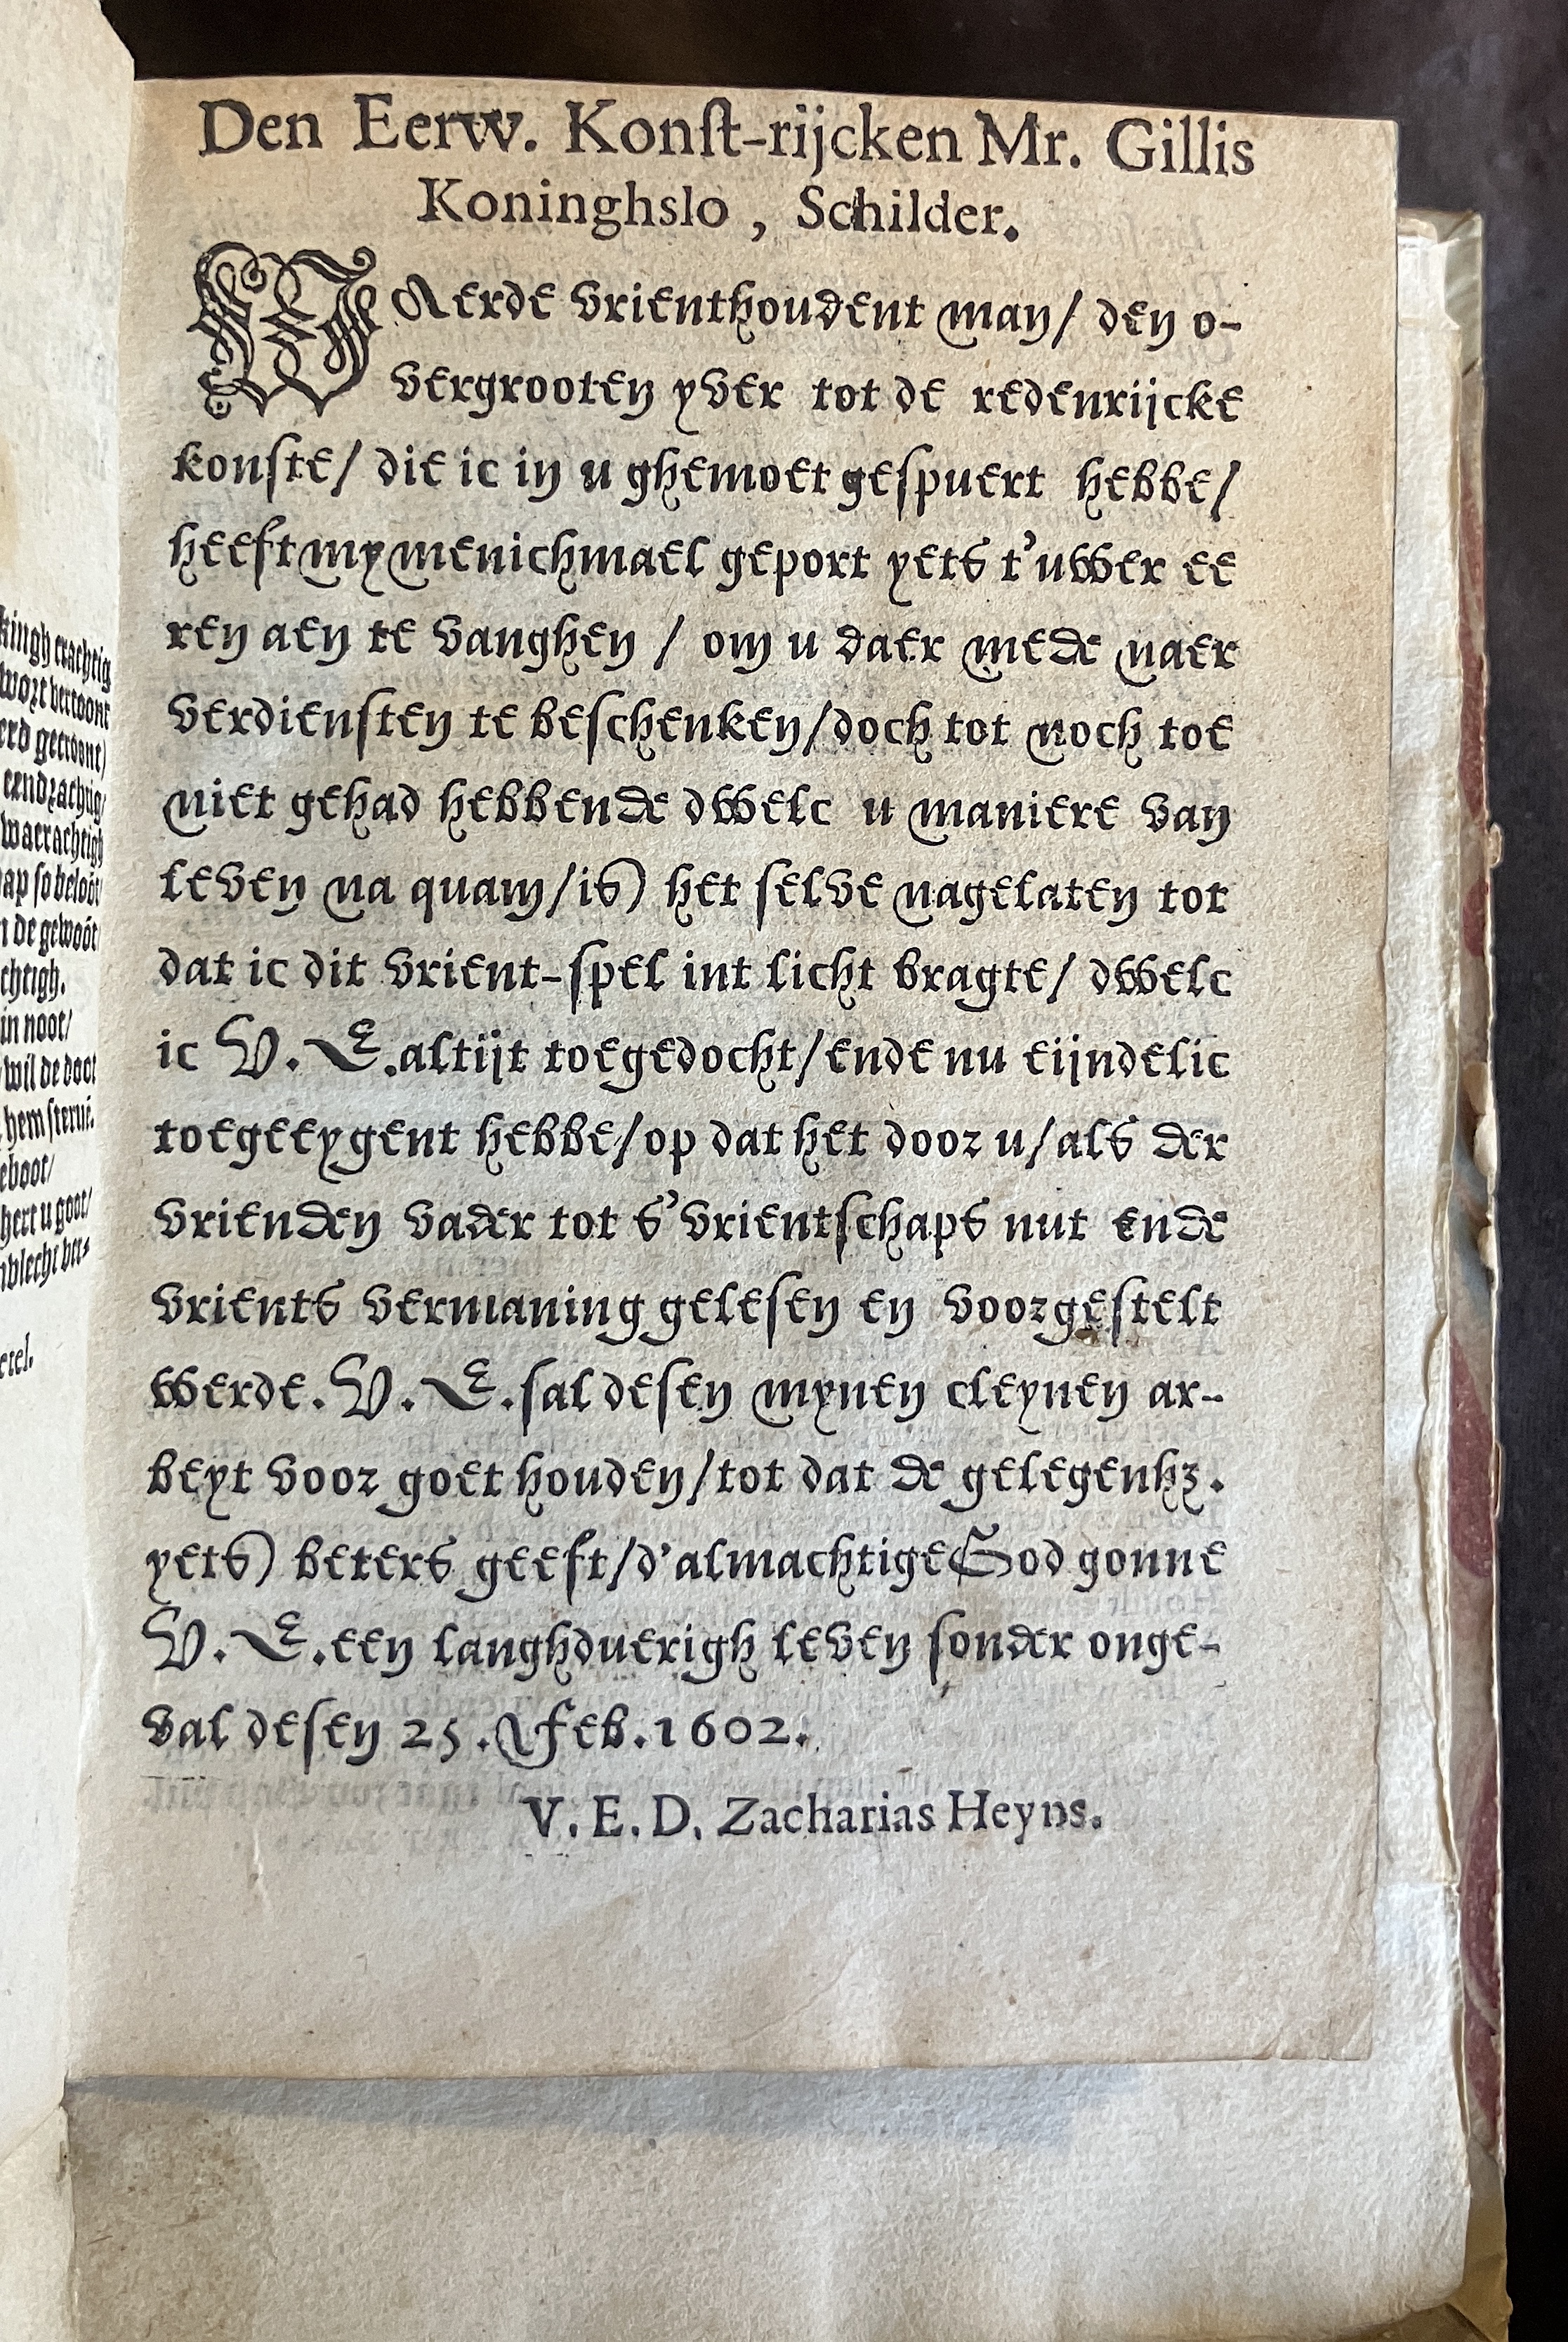 Den Eerw. Konſt-rijcken Mr. Gillis
Koninghslo, Schilder.
WAerde vrienthoudent man/ den o-
vergrooten yver tot de redenrijcke
konſte/ die ic in u ghemoet geſpuert hebbe/
heeft my menichmael geport yets t'uwer ee
ren aen te vanghen / om u daer mede naer
verdienſten te beſchenken/doch tot noch toe
niet gehad hebbende dwelc u maniere van
leven na quam/is) het ſelve nagelaten tot
dat ic dit vrient-ſpel int licht bragte/ dwelc
ic V. E.altijt toegedocht/ende nu eijndelic
toegeeygent hebbe/op dat het door u/als der
vrienden vader tot s'vrientſchaps nut ende
vrients vermaning geleſen en voorgeſtelt
werde. V. E.ſal deſen mynen cleynen ar-
beyt voor goet houden/tot dat de gelegenhz.
yets) beters geeft/d'almachtige God gonne
V. E.een langhduerigh leven ſonder onge-
val deſen 25. Feb.1602.
V. E. D. Zacharias Heyns.
kingh crachtig
wort vertoont
erd gecroont/
eendrachtig/
waerachtigh
ap ſo beloot/
chtigh.
in noot/
wil de doot
hem ſteruē.
eboot/
hert u goot/